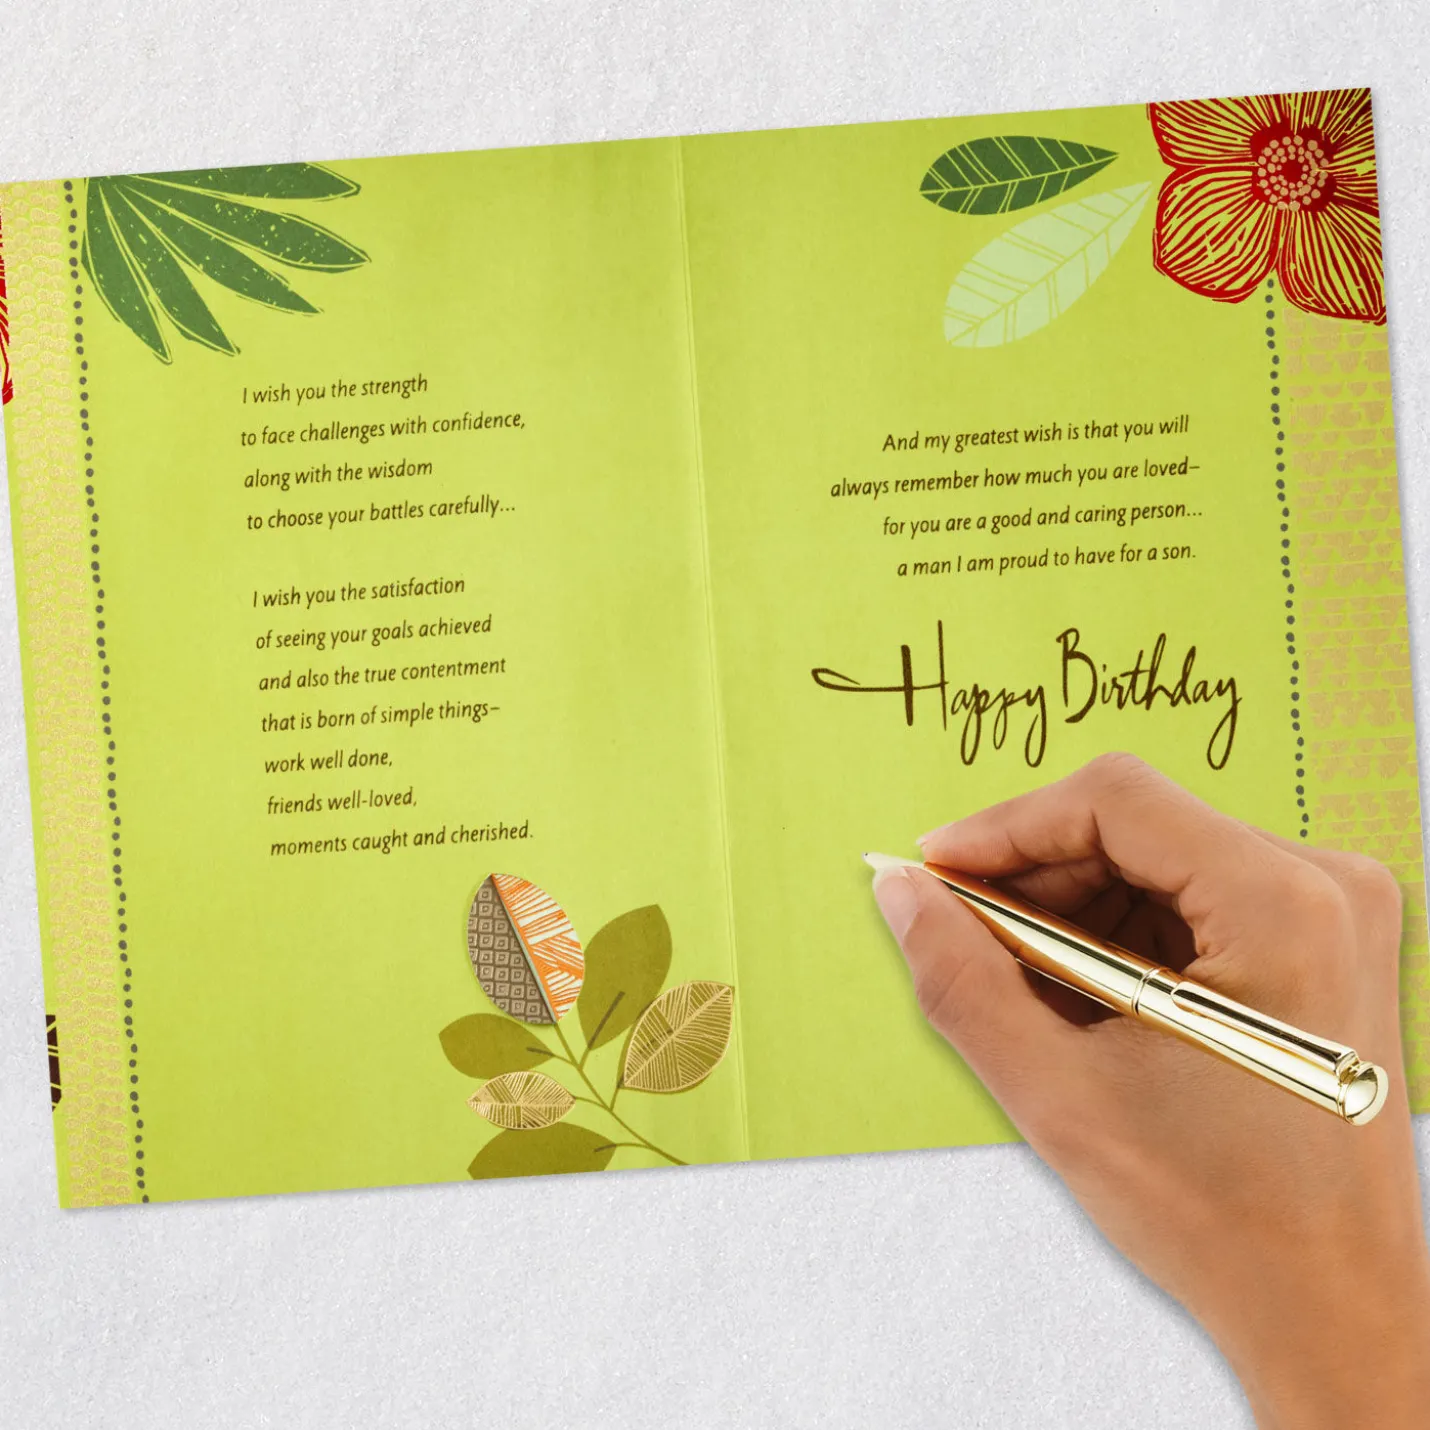 I wish you the strength
to face challenges with confidence,
along with the wisdom
to choose your battles carefully...
I wish you the satisfaction
of seeing your goals achieved
and also the true contentment
that is born of simple things–
work well done,
friends well-loved,
moments caught and cherished.
And my greatest wish is that you will
always remember how much you are loved–
for you are a good and caring person...
a man I am proud to have for a son.
Happy Birthday